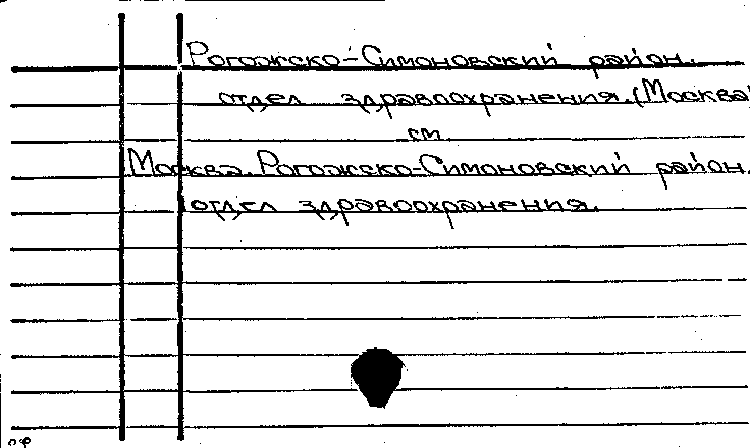 Рогожско-Симоновский район.
отдел здравоохранения. (Москва)
см.
Москва. Рогожско-Симоновский район.
отдел здравоохранения.